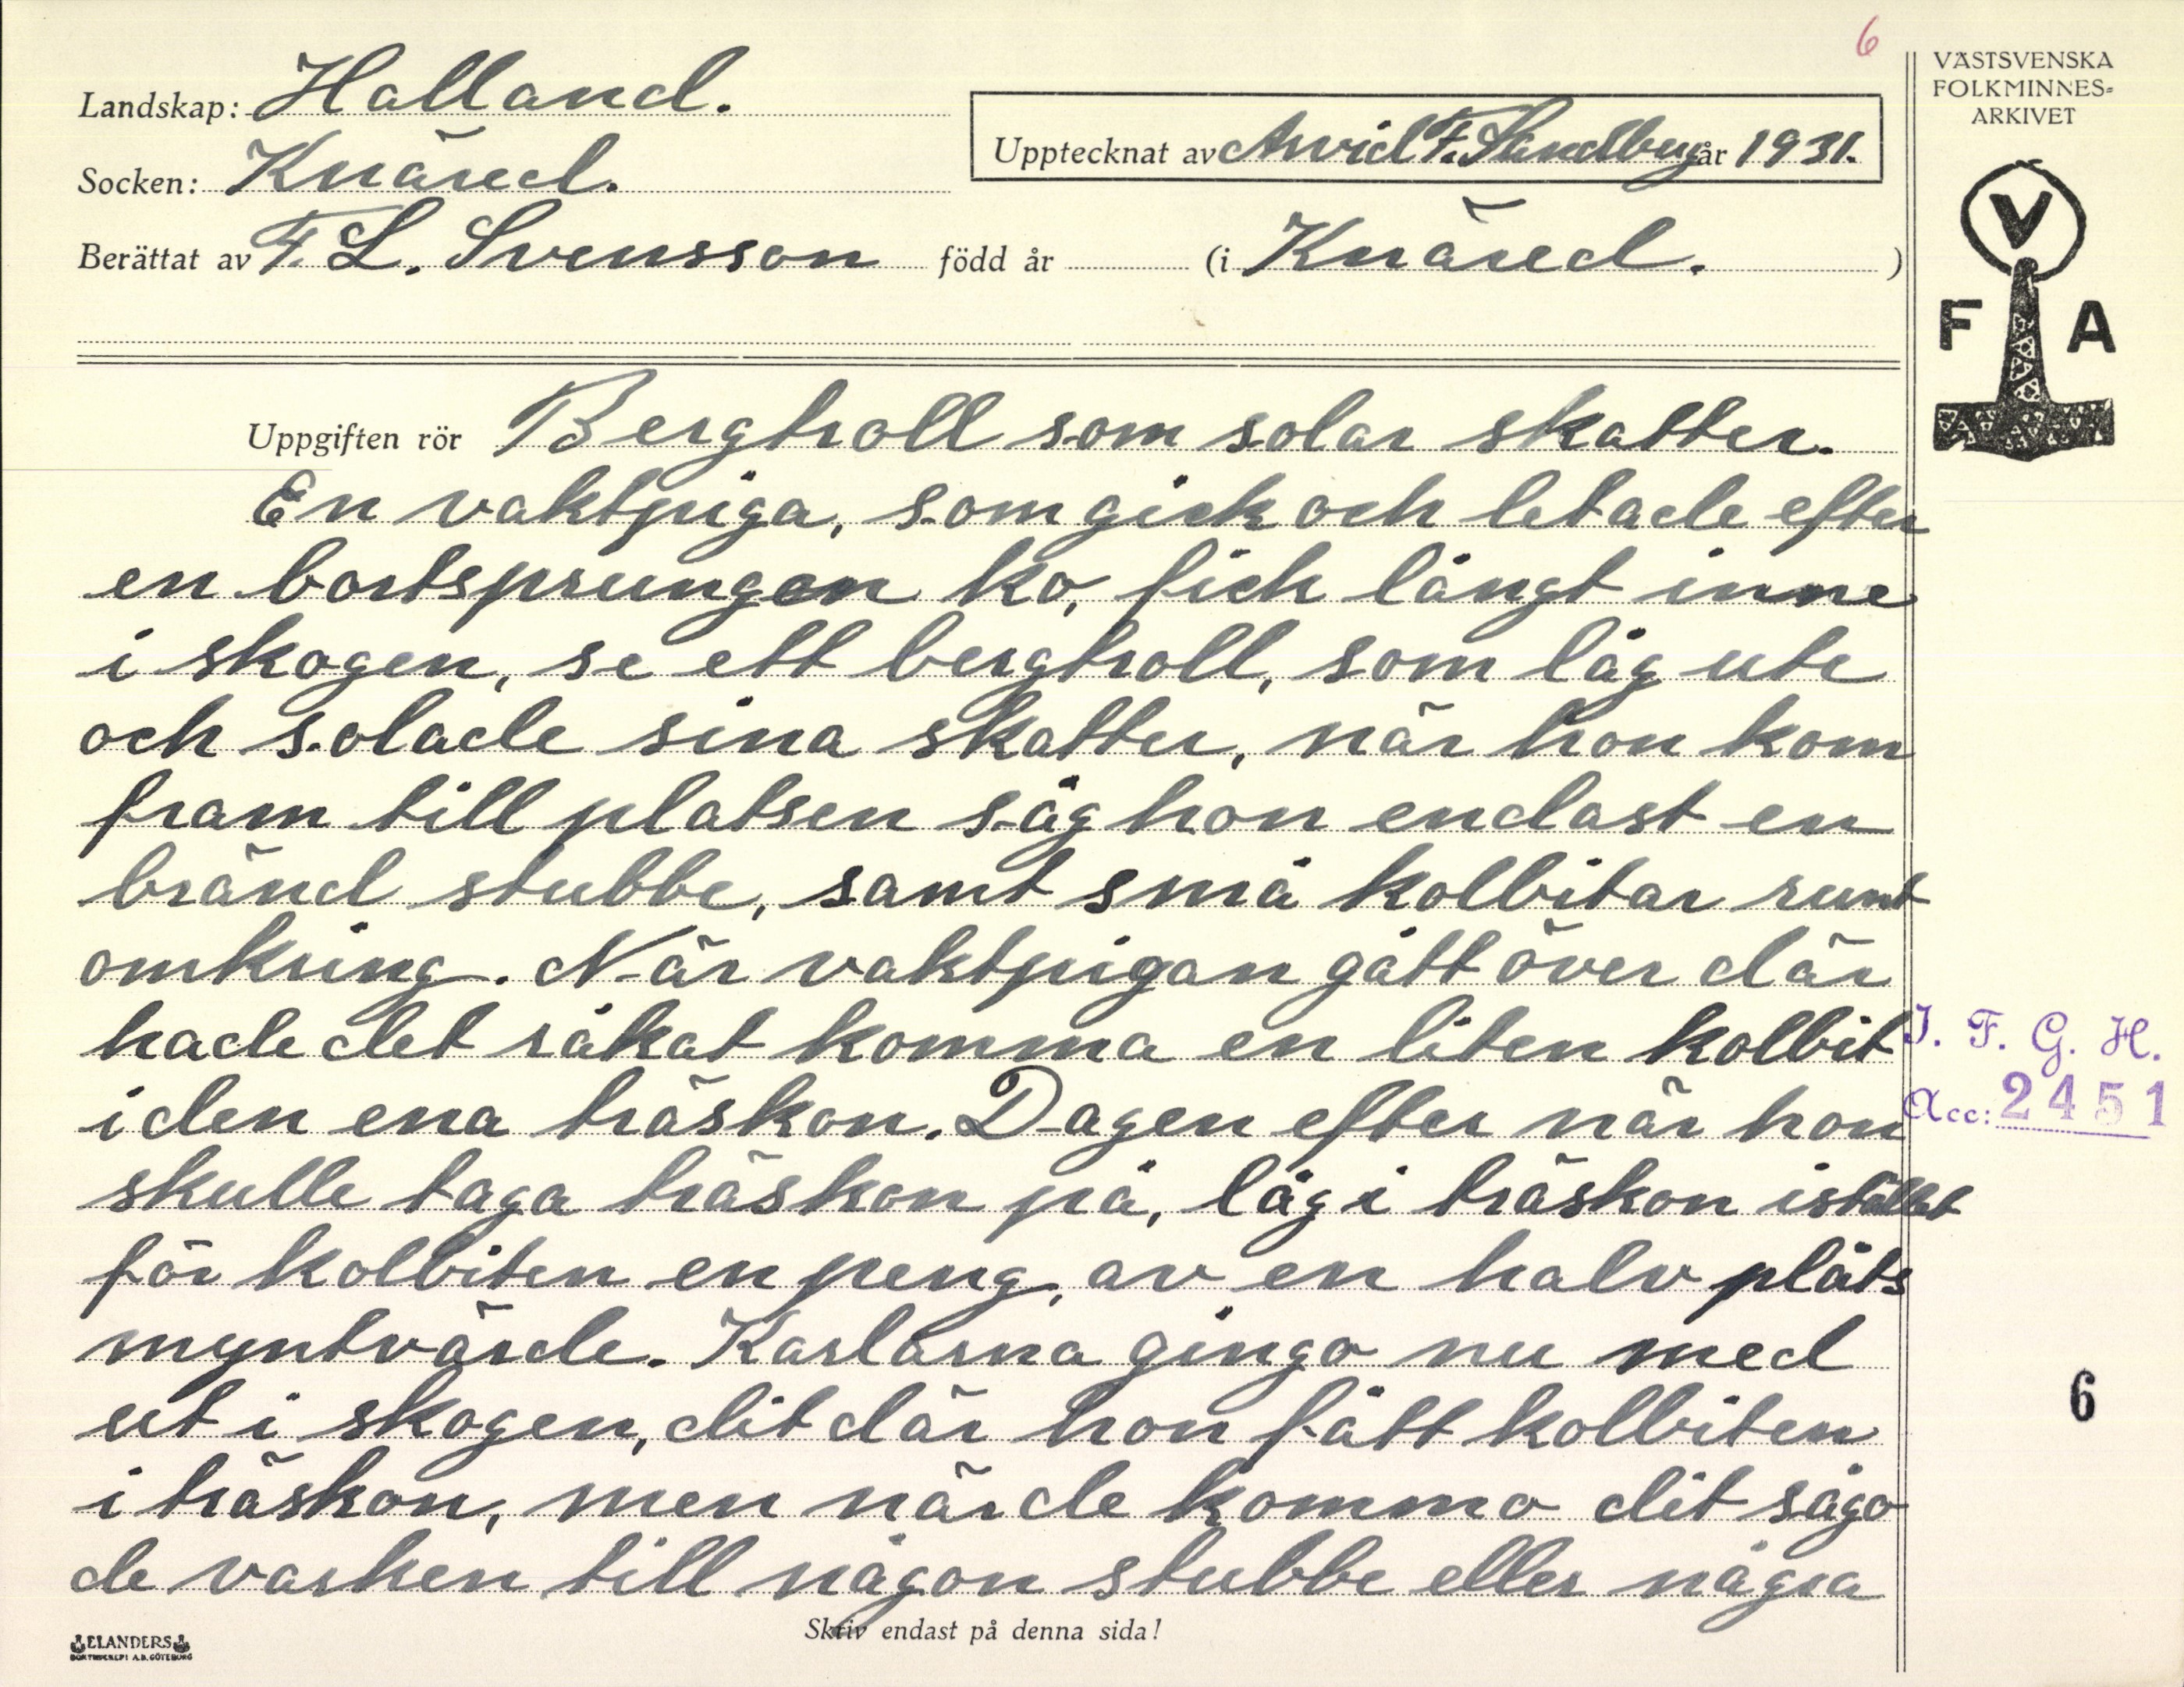 6
Landskap: Halland.
Socken: Knäred.
Berättat av F. L. Svensson född år (i Knäred. )
Upptecknat av Arvid F. Sandberg år 1931.
VÄSTSVENSKA
FOLKMINNES=
ARKIVET
V
F A
Uppgiften rör Bergtroll som solar skatter.
En vaktpiga, som gick och letade efter
en bortsprungen ko, fick långt inne
i skogen, se ett bergtroll, som låg ute
och solade sina skatter, när hon kom
fram till platsen såg hon endast en
bränd stubbe, samt små kolbitar runt
omkring. När vaktpigan gått över där
hade det råkat komma en liten kolbit
i den ena träskon. Dagen efter när hon
skulle taga träskon på, låg i träskon istället
för kolbiten en peng, av en halv plåts
myntvärde. Karlarna gingo nu med
ut i skogen, dit där hon fått kolbiten
i träskon, men när de kommo dit sågo
de varken till någon stubbe eller några
I. F. G. H.
Acc: 2451
6
Skriv endast på denna sida!
ELANDERS
BOKTRYCKERI A.B. GÖTEBORG